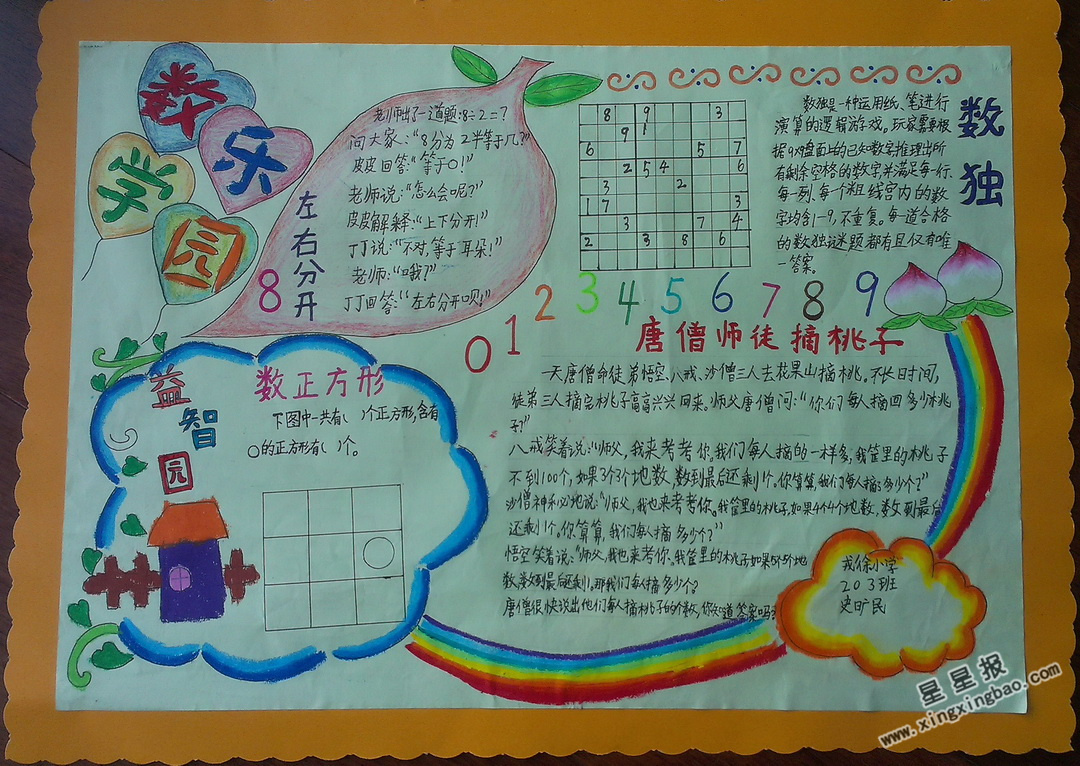 数学乐园
老师出了一道题:8÷2=?
问大家:“8分为2半等于几?”
皮皮回答:“等于0!”
老师说:“怎么会呢?”
皮皮解释:“上下分开!”
丁丁说:“不对,等于耳朵!”
老师:“哦?”
丁丁回答:“左右分开呗!”
左右分开
8
8 9 3
9 1
6 5 7
2 5 4 6
3 2
1 7 3
3 7 4
2 3 8 6
数独
数独是一种运用纸、笔进行
演算的逻辑游戏。玩家需要根
据9×9盘面上的已知数字,推理出所
有剩余空格的数字,并满足每一行、
每一列、每个粗线宫内的数
字均含1-9,不重复。每道合格
的数独谜题都有且仅有唯
一答案。
0 1 2 3 4 5 6 7 8 9
唐僧师徒摘桃子
一天唐僧命徒弟悟空、八戒、沙僧三人去花果山摘桃。不长时间,
徒弟三人摘完桃子高高兴兴回来。师父唐僧问:“你们每人摘回多少个桃
子?”
八戒笑着说:“师父,我来考考你。我们每人摘的一样多,我筐里的桃子
不到100个,如果3个3个地数,数到最后还剩1个。你算算,我们每人摘了多少个?”
沙僧神秘地说:“师父,我也来考考你。我筐里的桃子,如果4个4个地数,数到最后
还剩1个。你算算,我们每人摘多少个?”
悟空笑着说:“师父,我也来考你。我筐里的桃子如果5个5个地
数,数到最后还剩1个。那我们每人摘多少个?
唐僧很快说出他们每人摘桃子的个数,你知道答案吗?
益智园
数正方形
下图中一共有( )个正方形,含有
○的正方形有( )个。
小学
203班
史旷民
星星报
www.xingxingbao.com